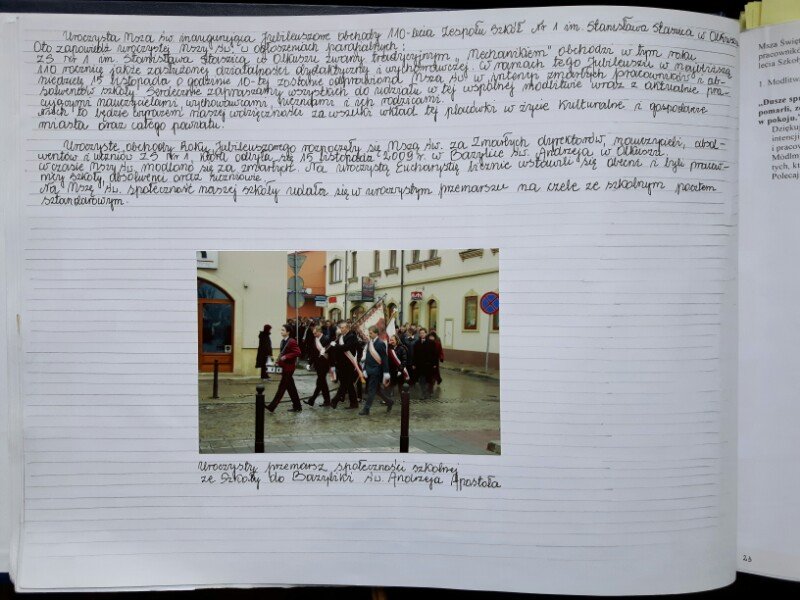 Uroczysta Msza Św. inaugurująca Jubileuszowe obchody 110-lecia Zespołu Szkół Nr 1 im. Stanisława Staszica w Olkuszu
Oto zapowiedź uroczystej Mszy Św. w ogłoszeniach parafialnych:
ZS Nr 1 im Stanisława Staszica w Olkuszu zwany tradycyjnym „Mechanikiem" obchodzi w tym roku
110 rocznicę jakże zasłużonej działalności dydaktycznej i wychowawczej. W ramach tego Jubileuszu w najbliższą
niedzielę 15 listopada o godzinie 10-tej zostanie odprawiona Msza Św. w intencji zmarłych pracowników i ab-
solwentów szkoły. Serdecznie zapraszamy wszystkich do udziału w tej wspólnej modlitwie wraz z aktualnie pra-
cującymi nauczycielami, wychowawcami, uczniami i ich rodzicami.
Niech to będzie wyrazem naszej wdzięczności za wielki wkład tej placówki w życie kulturalne i gospodarcze
miasta oraz całego powiatu.
Uroczyste obchody Roku Jubileuszowego rozpoczęły się Mszą Św. za zmarłych dyrektorów, nauczycieli, absol-
wentów i uczniów ZS Nr 1, która odbyła się 15 listopada 2009 r. w Bazylice Św. Andrzeja w Olkuszu.
W czasie Mszy Św. modlono się za zmarłych. Na uroczystą Eucharystię licznie wstawili się obecni i byli pracow-
nicy szkoły, absolwenci oraz uczniowie.
Na Mszę Św. społeczność naszej szkoły udała się w uroczystym przemarszu na czele ze szkolnym pocztem
sztandarowym.
Uroczysty przemarsz społeczności szkolnej
ze Szkoły do Bazyliki Św. Andrzeja Apostoła
Msza Święt
pracowników
lecia Szkoły
1 Modlitw
„Dusze spr
pomarli, z
w pokoju.
Dzięku
intencji
i praco
Módlm
tych, k
Polecaj
23